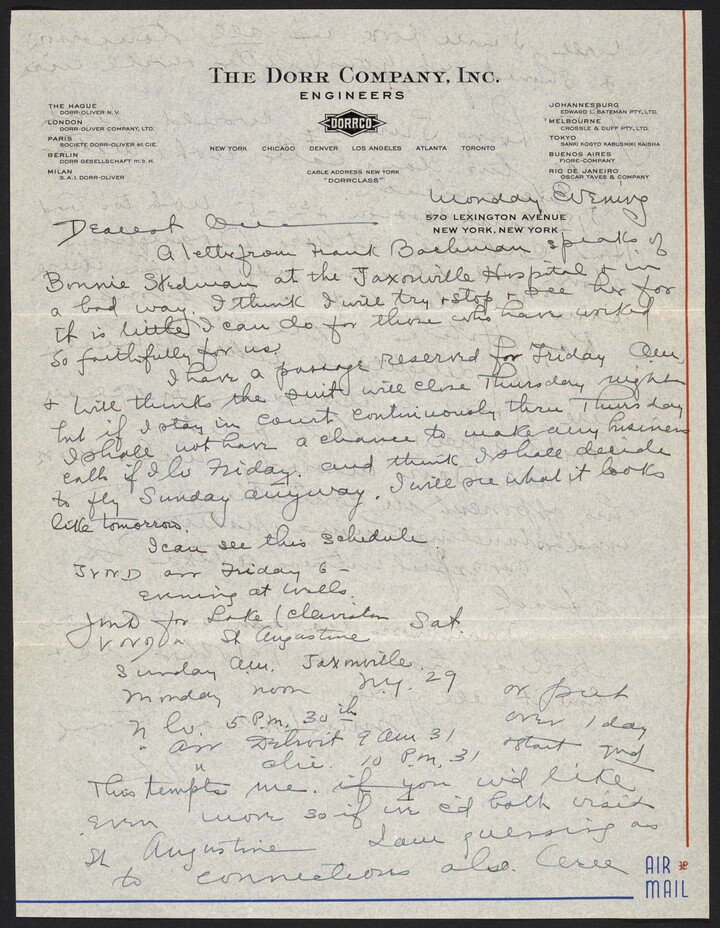 THE DORR COMPANY, INC.
ENGINEERS
DORRCO
THE HAGUE
DORR-OLIVER N.V.
LONDON
DORR-OLIVER COMPANY, LTD.
PARIS
SOCIETE DORR-OLIVER et CIE.
BERLIN
DORR GESELLSCHAFT m.b.H.
MILAN
S.A.I. DORR-OLIVER
NEW YORK CHICAGO DENVER LOS ANGELES ATLANTA TORONTO
CABLE ADDRESS NEW YORK
"DORRCLASS"
JOHANNESBURG
EDWARD L. BATEMAN PTY., LTD.
MELBOURNE
CROSSLE & DUFF PTY., LTD.
TOKYO
SANKI KOGTO KABUSHIKI KAISHA
BUENOS AIRES
FIORE-COMPANY
RIO DE JANEIRO
OSCAR TAVES & COMPANY
570 LEXINGTON AVENUE
NEW YORK, NEW YORK
Monday Evening
Dearest
A letter from Frank Bachman speaks of
Bonnie Stedman at the Jaxonville Hospital & in
a bad way. I think I will try & stop & see her for
it is little I can do for those who have worked
so faithfully for us.
I have a passage reserved for Friday am,
& Will thinks the suit will close Thursday night
but if I stay in court continuously thru Thursday
I shall not have a chance to make any business
calls if I lv Friday. and think I shall decide
to fly Sunday anyway. I will see what it looks
like tomorrow.
I can see this schedule
JVND arr Friday 6 -
evening at Wells.
for Lake / Clewiston Sat.
St Augustine
Sunday am. Jaxonville.
Monday noon N.Y. 29 or put
lv. 5 P.M. 30th over 1 day
" arr Detroit 9 am 31 start 2nd
" 10 P.M. 31
This tempts me. if you w'd like
even more so if we c'd both visit
St Augustine I am guessing as
to connections also.
AIR
MAIL